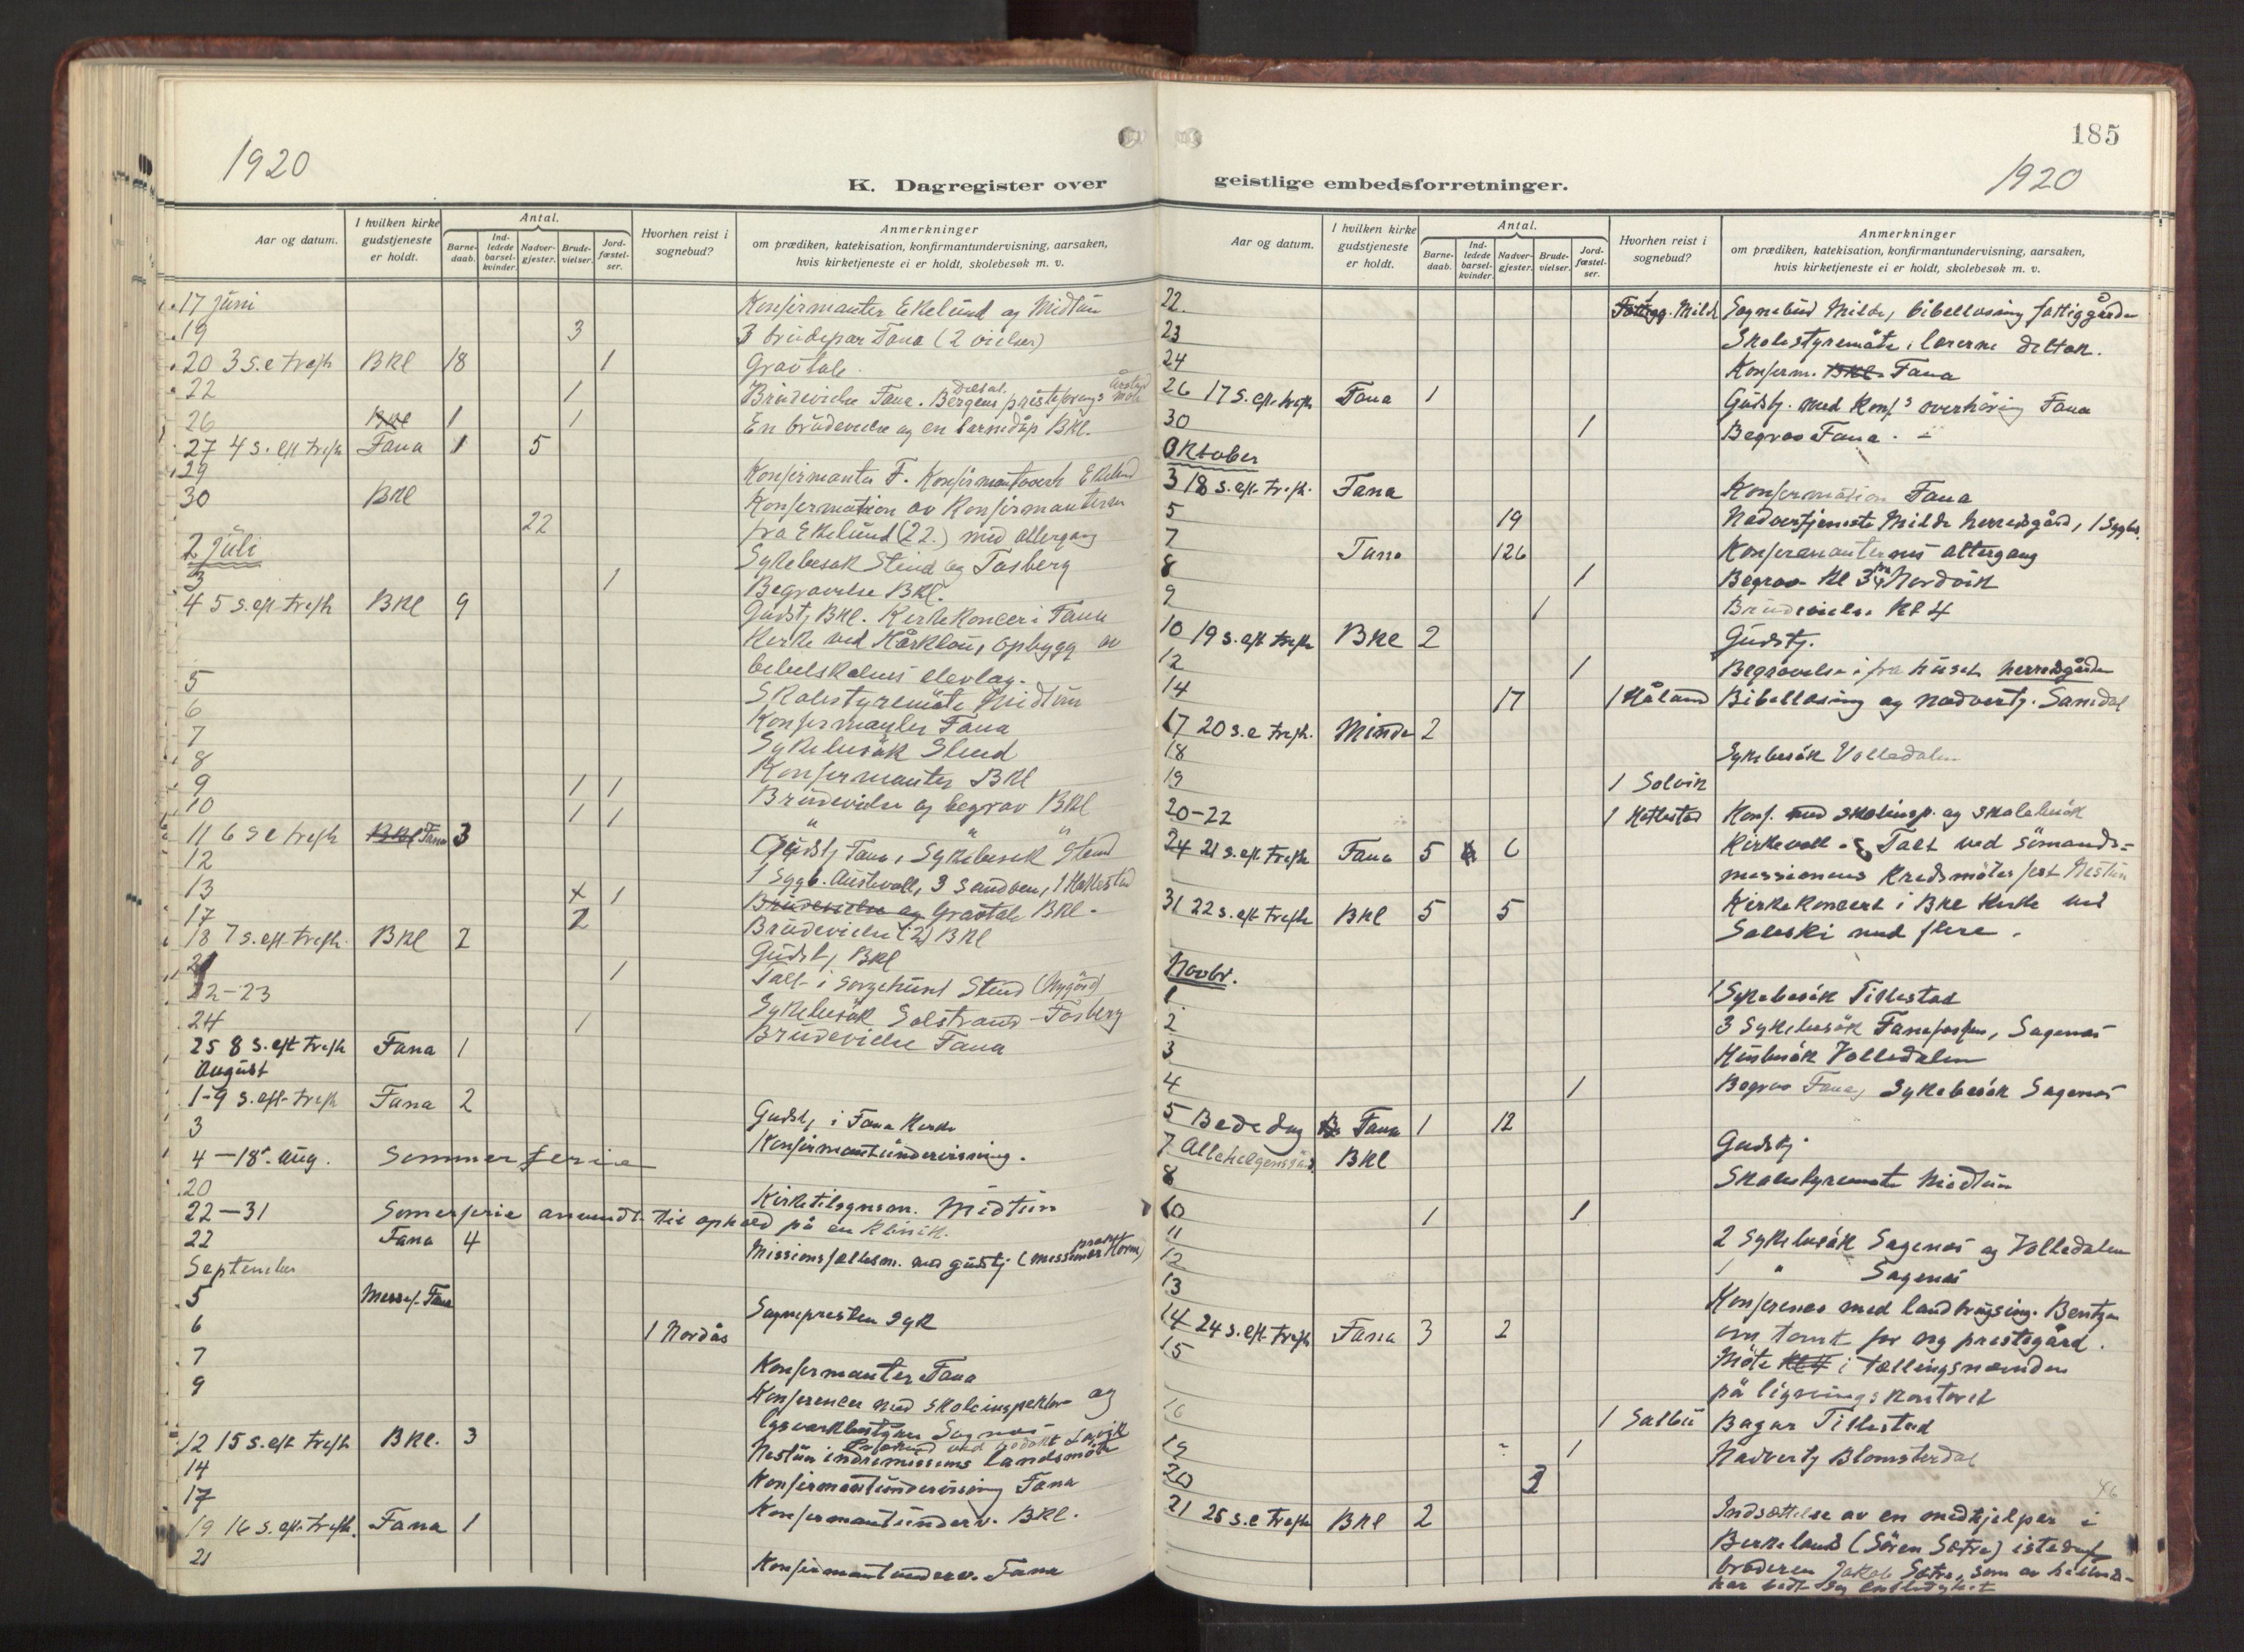 1920
K. Dagregister over
Aar og datum.
I hvilken kirke gudstjeneste er holdt.
Antal.
Barne-daab.
Ind-ledede barsel-kvinder.
Nadver-gjester.
Brude-vielser.
Jord-fæstel-ser.
Hvorhen reist i sognebud?
Anmerkninger
om prædiken, katekisation, konfirmantundervisning, aarsaken,
hvis kirketjeneste ei er holdt, skolebesøk m. v.
17 juni Konfirmanter Ekelund og Midtun
19 3 3 brudepar Fana (2 vielser)
20 3 s. e trefh BKl 18 1 Gravtale.
22 1 Brudevielse Fana. Bergens
26 BKl 1 1 En brudevielse og en barnedåp BKl.
27 4 s. eft trefh Fana 1 5
29 Konfirmanter F.
30 BKl Konfirmation av Konfirmanterne
22 fra Ekelund (22.) med altergang
2 Juli Sykebesøk Stend og Fasberg
3 1 Begravelse BKl.
4 5 s. eft trefh BKl 9 Gudstj BKl. Kirkekoncer i Fana
Kirke ved Hårklau, opbygg av
bibelskolens elevlag.
5 Skolestyremöte Midtun
6 Konfirmanter Fana
7 Sykebesök Stend
8 Konfirmanter BKl
9 1 1 Brudevielse og begrav BKl
10 1 1 " " "
11 6 s e trefh BKl Fana 3 Gudstj Fana, Sykebesøk Stend
12 1 Sygb. Austevoll, 3 Sandven, 1 Hatlestad
13 x 1 Brudevielse og Gravtale BKl.
17 2 Brudevielse (2) BKl
18 7 s. eft trefh. BKl 2 Gudstj BKl
21 1 Tale i sørgehuset Stend (Nygård)
22-23 Sykebesök Solstrand - Fasberg
24 1 Brudevielse Fana
25 8 s. eft trefh Fana 1
August
1-9 s. eft trefh Fana 2 Gudstj i Fana Kirke
3 Konfirmantundervisning.
4-18. Aug. Sommerferie
20 Kirketilsynsm. Midtun
22-31 Somerferie anvendt til ophold på en klinik.
22 Fana 4 Missionsfællesm. med gudstj
September
5 Messef. Fana Sognepresten syk
6 1 Nordås
7 Konfirmanter Fana
9 Konferencer med skoleinspektør og
12 15 s. eft trefh BKl. 3 Nestun indremissions landsmöte
14 Konfirmantundervisning Fana
17 Konfirmantunderv. BKl.
19 16 s. eft trefh. Fana 1
21 Konfirmantunderv. Fana
185
1920
geistlige embedsforretninger.
Aar og datum.
I hvilken kirke gudstjeneste er holdt.
Antal.
Barne-daab.
Ind-ledede barsel-kvinder.
Nadver-gjester.
Brude-vielser.
Jord-fæstel-ser.
Hvorhen reist i sognebud?
Anmerkninger
om prædiken, katekisation, konfirmantundervisning, aarsaken,
hvis kirketjeneste ei er holdt, skolebesøk m. v.
22. Milde Sognebud Milde, bibellæsning fattiggården
23 Skolestyremöte, lærerne deltok.
24 Konferm. BKl. Fana
26 17 s. eft trefh Fana 1 Gudstj. med Konf's overhöring Fana
30 1 Begrav Fana.
Oktober
3 18 s. eft trefh. Fana Konfirmation Fana
5 19 Nadvertjeneste Milde herredsgård,
7 Fana 126 Konfirmanternes altergang
8 1 Begrav Kl 3 Nordvik
9 1 Brudevielse Kl 4
10 19 s. eft trefh BKl 2 Gudstj.
12 1 Begravelse i fra huset herredsgården
14 17 1 Håland Bibellæsning og nadvertj. Sandal
17 20 s. e trefh. Minde 2
18 Sykebesök Volledalen
19 1 Solvik
20-22 1 Hatlestad Konf. med skoleinsp. og skolebesök
24 21 s. eft trefh Fana 5 6 Kirkevoll. Talt ved sömands-
missionens Kredsmötes fest Nestun
31 22 s. eft trefh BKl 5 5 Kirkekoncert i BKl Kirke ved
med flere.
Novbr.
1 1 Sykebesök Tillestad
2 3 Sykebesök Fanefossen, Sagenes
3 Husbesök Volledalen
4 1 Begrav Fana, Sykebesök Sagenes
5 Bededag Fana 1 12 Gudstj.
7 Allehelgensdag BKl
8 Skolestyremöte Midtun
10 1 1
11 2 Sykebesök Sagenes og Volledalen
12 1 " Sagenes
13 Konferens med landbrugsing. Bentzen
14 24 s. eft trefh Fana 3 2 om tomt for ny prestegård.
15 Möte Kl 4 i tællingsnemnden
på ligningskontoret
16 1 Sælbu Tillestad
19 1 Nadvertj Blomsterdal
20 2
21 25 s. e trefh BKl 2 Indsættelse av en medhjelper i
Birkeland (Sören Sætre) istedenf
broderen Jakob Sætre, som av helbreds-
har bedt sig entlediget
46